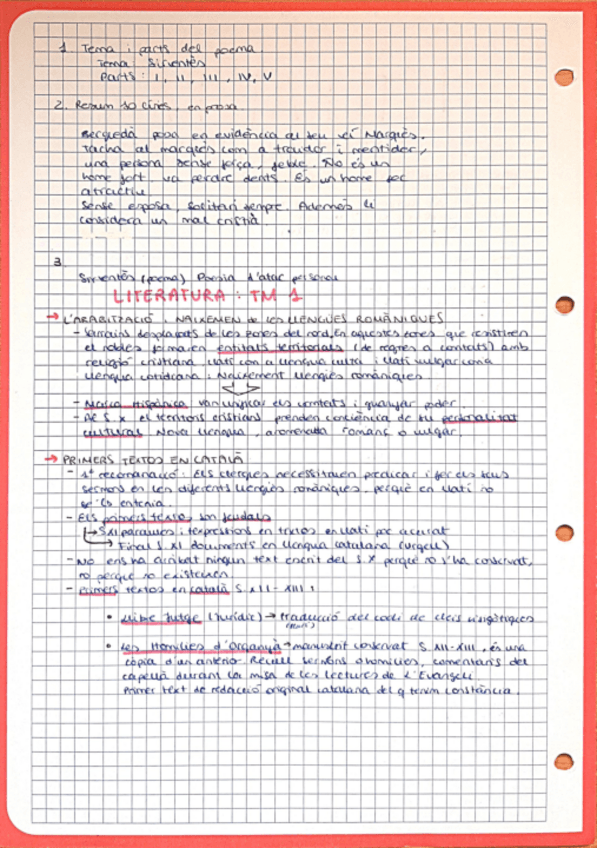 1. Tema i parts del poema
Tema: Sirventès
Parts: I, II, III, IV, V
2. Resum 10 línies, en prosa.
Berguedà posa en evidència al seu veí Marquès.
Tacha al marquès com a traidor i mentider,
una persona sense força, feble. No és un
home fort va perdre dents. És un home poc
atractiu
Sense esposa, solitari sempre. Ademés le
considera un mal cristià.
3.
Sirventès (poema) Poesia d'atac personal
LITERATURA: TM 1
→ L'ARABITZACIÓ i NAIXEMEN de les LLENGÜES ROMÀNIQUES
- desplaçats de les zones del nord, En aquestes zones que resistiren
el nobles formaren entitats territorials (de regnes a comtats) amb
religió cristiana, llatí com a llengua culta i llatí vulgar com a
llengua cotidiana i Naixement llengües romàniques.
- Marca Hispànica van unificar els comtats i guanyar poder
- Al S. X el territoris cristians prenden conciència de su personalitat
cultural Nova llengua, anomenada romanç o vulgar.
→ PRIMERS TEXTOS EN CATALÀ
- 1ª recomanació: ELS clergues necessitaven predicar i fer els seus
sermons en les diferents llengües romàniques, perquè en llatí no
se'ls entenia.
- Els primers textos són feudals
S.XI paraules i expressions en textos en llatí poc acurat
Final S. XI documents en llengua catalana (Urgell)
- NO ens ha arribat ningun text escrit del S. X perquè no s'ha conservat,
no perquè no existeixen.
- Primers textos en català S. XII - XIII:
• Llibre Jutge (Jurídic) → traducció del codi de lleis visigòtiques
• Les Homilies d'Organyà → manuscrit conservat S. XII-XIII, és una
còpia d'un anterior. Recull sermons o homilies, comentaris del
capellà durant la misa de les lectures de l'Evangeli
Primer text de redacció original catalana del q tenim constància.